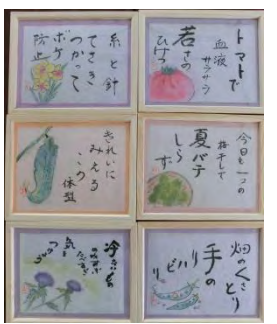 糸と針
てさき
つかって
ボケ
防止
トマトで
血液
サラサラ
若さの
ひけつ
きれいに
みえる
この
体型
今日も一つの
梅干しで
夏バテ
しら
ず
冷たいもの
気を
畑のくさとり
手の
リハビリ